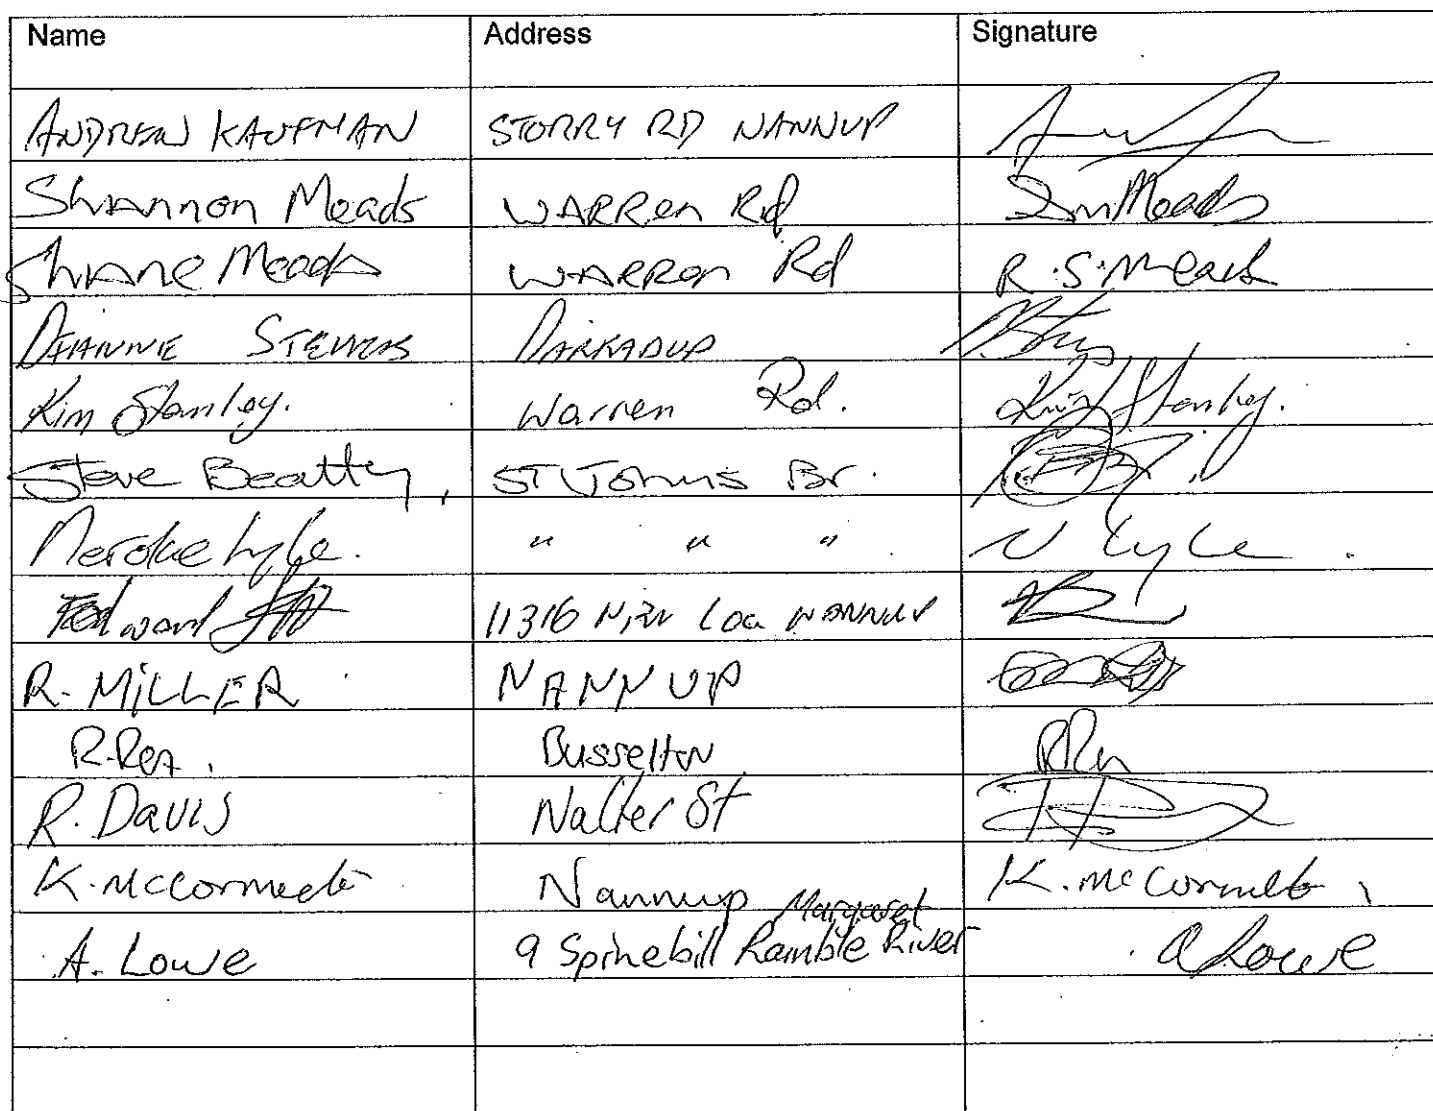 Name Address Signature
ANDREW KAUFMAN STORRY RD NANNUP
Shannon Meads WARREN Rd Meads
Shane Meads WARREN Rd R.S. Meads
DIANNE STEVENS DARRADUP
Kim Stanley. Warren Rd. Kim Stanley.
Steve Beatty, ST Johns Br.
Lyle. " " " N Lyle.
Edward 11316 NANNUP
R. MILLER NANNUP
R. Rea. Busselton
R. Davis St
K. McCormick Nannup K. McCormick
A. Lowe 9 Spinebill Ramble Margaret River A Lowe